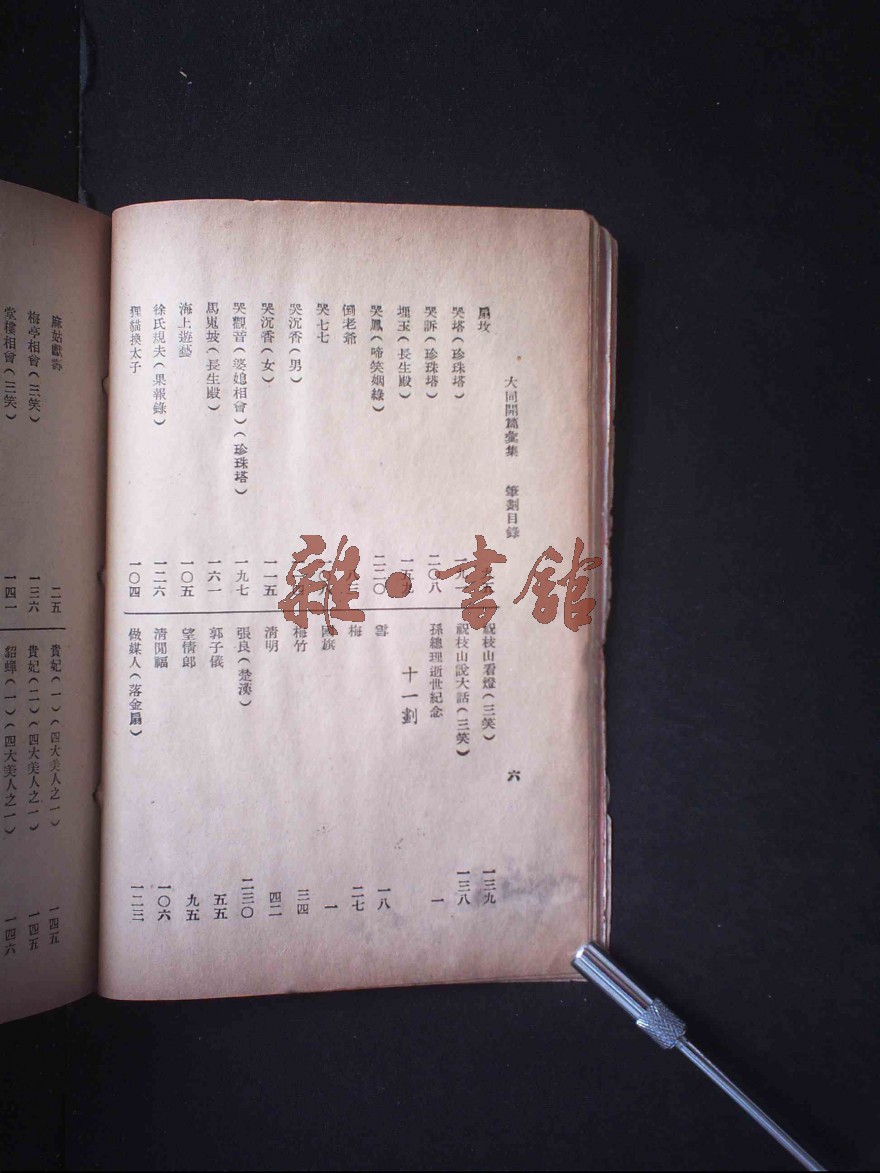 大同開篇彙集　筆劃目錄　六
扇坟
哭塔（珍珠塔）
哭訴（珍珠塔）　二〇八
埋玉（長生殿）　一五九
哭鳳（啼笑姻緣）　二二〇
倒老爺
哭七七
哭沉香（男）
哭沉香（女）　一一五
哭觀音（婆媳相會）（珍珠塔）　一九七
馬嵬坡（長生殿）　一六一
海上遊藝　一〇五
徐氏規夫（果報錄）　一二六
狸貓換太子　一〇四
祝枝山看燈（三笑）　一三九
祝枝山說大話（三笑）　一三八
孫總理逝世紀念　一
十一劃
雪　一八
梅　二七
國旗　一
梅竹　三四
清明　四二
張良（楚漢）　二三〇
郭子儀　五五
望情郎　九五
清閒福　一〇六
做媒人（落金扇）　一二三
麻姑獻壽　二五
梅亭相會（三笑）　一三六
堂樓相會（三笑）　一四一
貴妃（一）（四大美人之一）　一四五
貴妃（二）（四大美人之一）　一四五
貂蟬（一）（四大美人之一）　一四六
雜·書館